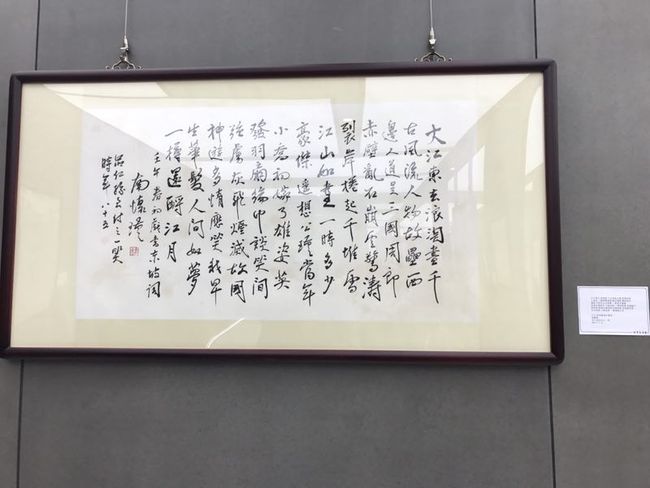 大江東去浪淘盡千
古風流人物故壘西
邊人道是三國周郎
赤壁亂石崩雲驚濤
裂岸捲起千堆雪
江山如畫一時多少
豪傑遙想公瑾當年
小喬初嫁了雄姿英
發羽扇綸巾談笑間
強虜灰飛煙滅故國
神遊多情應笑我早
生華髮人間如夢
一樽還酹江月
壬午春初戲書東坡詞
南懷瑾
付之一笑
時年八十五